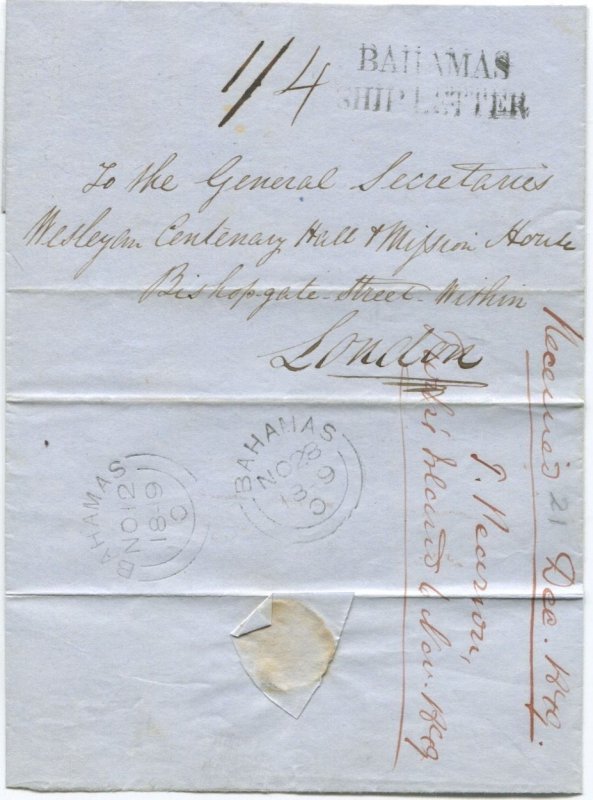 1/4
BAHAMAS
SHIP LETTER
To the General Secretaries
Wesleyan Centenary Hall & Mission House
Bishopgate Street Within
London
BAHAMAS
NO 28
1849
C
BAHAMAS
NO 12
1849
C
Received 21 Dec. 1849.
Island 6 Nov. 1849